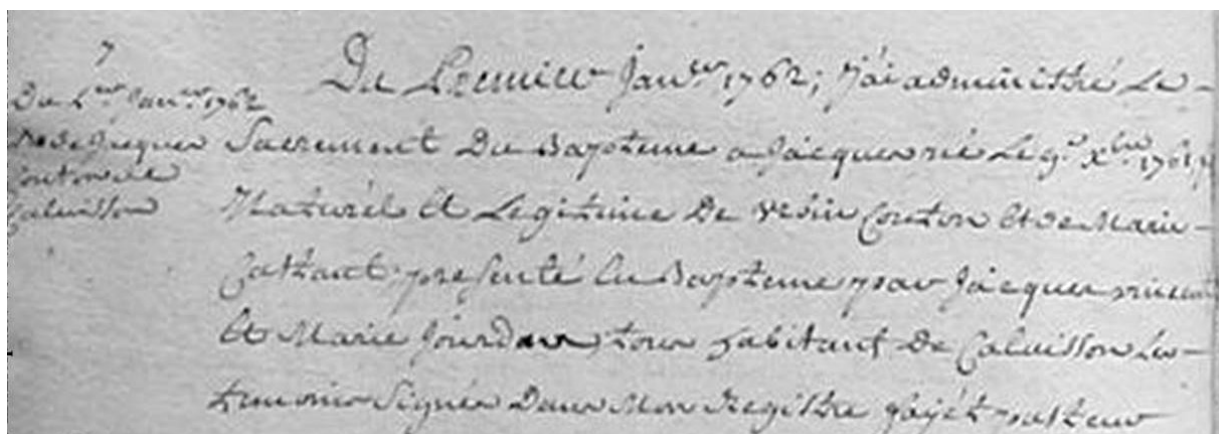 7
Du 1er Janver 1762
Bes de Jacques
Couton de
Calvisson
Du Premier Janver 1762; j'ai administré Le
Sacrement Du Bapteme a Jacques né Le 9e xbre 1761
Naturel et Legitime De Couton et de Marie
presenté au Bapteme par Jacques vincent
et Marie Jourdan, tous habitant de Calvisson Les
temoins Signés Dans Mon Registre gajét pasteur